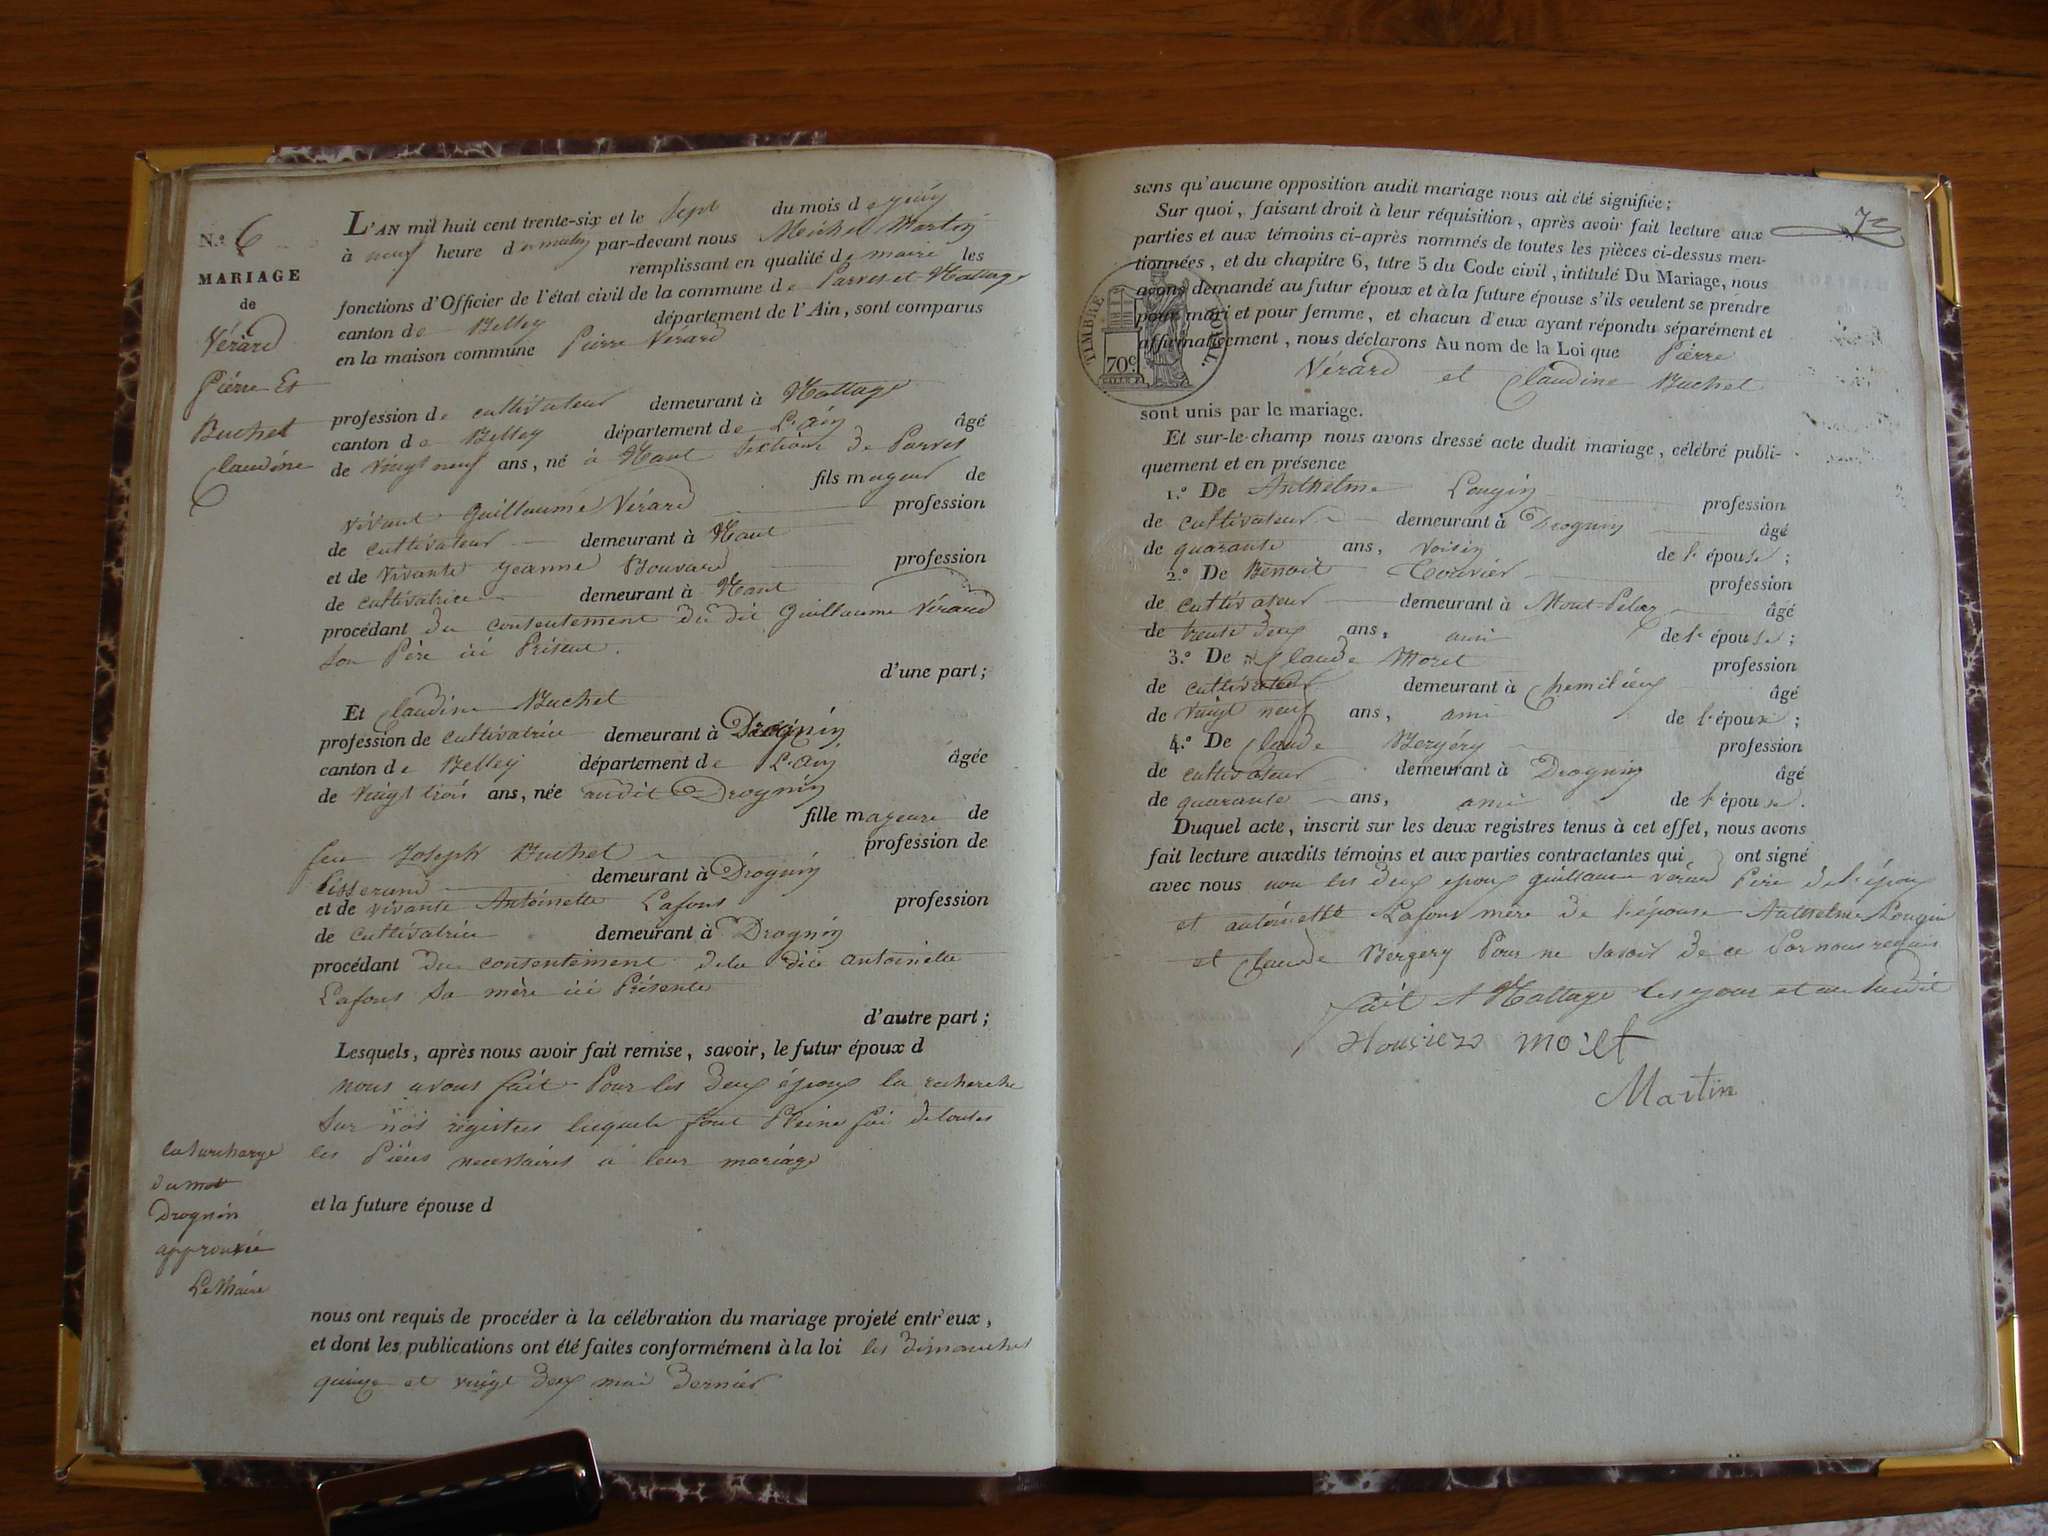 N.º 6
MARIAGE
de
Vérard
Piérre Et
Buchet
Claudine
L'AN mil huit cent trente-six et le sept du mois de juin
à neuf heure du matin par-devant nous Michel Martin
remplissant en qualité de maire les
fonctions d'Officier de l'état civil de la commune de Parves et Nattage
canton de Belley département de l'Ain, sont comparus
en la maison commune Piérre Vérard
profession de cultivateur demeurant à Nattage
canton de Belley département de L'Ain âgé
de vingt neuf ans, né à Haut section de Parves
fils majeur de
vivant Guillaume Vérard profession
de cultivateur demeurant à Haut
et de vivante Jeanne Bouvard profession
de cultivatrice demeurant à Haut
procédant du consentement du dit Guillaume Vérard
son Père ici Présent.
d'une part;
Et Claudine Buchet
profession de cultivatrice demeurant à Drognin
canton de Belley département de L'Ain âgée
de vingt trois ans, née audit Drognin
fille majeure de
feu Joseph Buchet profession de
tisserand demeurant à Drognin
et de vivante Antoinette Lafons profession
de cultivatrice demeurant à Drognin
procédant du consentement de la dite antoinette
Lafons sa mère ici Présente
d'autre part;
Lesquels, après nous avoir fait remise, savoir, le futur époux d
nous avons fait Pour les deux époux la recherche
sur nos registres lesquels font Pleine foi de toutes
les Pièces necessaires à leur mariage
et la future épouse d
la surcharge
du mot
Drognin
approuvée
Le Maire
nous ont requis de procéder à la célébration du mariage projeté entr'eux,
et dont les publications ont été faites conformément à la loi les dimanches
quinze et vingt deux mai dernier
7
sans qu'aucune opposition audit mariage nous ait été signifiée;
Sur quoi, faisant droit à leur réquisition, après avoir fait lecture aux
parties et aux témoins ci-après nommés de toutes les pièces ci-dessus men-
tionnées, et du chapitre 6, titre 5 du Code civil, intitulé Du Mariage, nous
avons demandé au futur époux et à la future épouse s'ils veulent se prendre
pour mari et pour femme, et chacun d'eux ayant répondu séparément et
affirmativement, nous déclarons Au nom de la Loi que Piérre
Vérard et Claudine Buchet
TIMBRE ROYAL.
70c
sont unis par le mariage.
Et sur-le-champ nous avons dressé acte dudit mariage, célébré publi-
quement et en présence
1.º De Anthelme Longin profession
de cultivateur demeurant à Drognin âgé
de quarante ans, voisin de l'épouse;
2.º De Benoit profession
de cultivateur demeurant à Mont-Pelaz âgé
de trente deux ans, ami de l'épouse;
3.º De Claude Moret profession
de cultivateur demeurant à Chemilieu âgé
de vingt neuf ans, ami de l'époux;
4.º De Claude Bergéry profession
de cultivateur demeurant à Drognin âgé
de quarante ans, ami de l'épouse.
Duquel acte, inscrit sur les deux registres tenus à cet effet, nous avons
fait lecture auxdits témoins et aux parties contractantes qui ont signé
avec nous non les deux epoux guillaume verard Père de l'époux
et antoinette Lafons mère de l'épouse Anthelme Longin
et Claude Bergery Pour ne savoir de ce Par nous requis
fait A Nattage les jour et an susdit
Martin